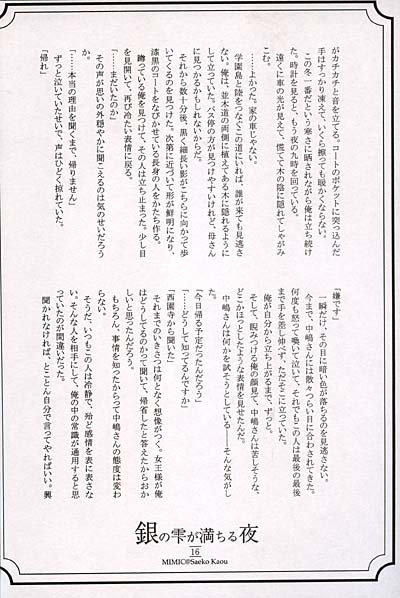 がカチカチと音を立てる。コートのポケットに突っ込んだ
手はすっかり凍えて、いくら擦っても暖かくならない。
この冬一番だという寒さに晒されながら俺は立ち続け
た。時計を見ると、もう夜の九時を回っている。
遠くに車の光が見えて、慌てて木の陰に隠れてしゃがみ
こむ。
……よかった。家の車じゃない。
学園島と陸をつなぐこの道にいれば、誰が来ても見逃さ
ない。俺は、並木道の両側に植えてある木に隠れるように
して立っていた。バス停の方が見つけやすいけれど、母さん
に見つかるかもしれないからだ。
それから数十分後、黒く細長い影がこちらに向かって歩
いてくるのを見つけた。次第に近づいて形が鮮明になり、
漆黒のコートをなびかせている長身の人をかたち作る。
蹲っている俺を見つけて、その人は立ち止まった。少し目
を見開いて、再び冷たい表情に戻る。
「……まだいたのか」
その声が思いの外穏やかに聞こえるのは気のせいだろう
か。
「……本当の理由を聞くまで、帰りません」
ずっと泣いていたせいで、声はひどく掠れていた。
「帰れ」
「嫌です」
一瞬だけ、その目に暗い色が落ちるのを見逃さない。
今まで、中嶋さんには散々つらい目に合わされてきた。
何度も怒って喚いて泣いて、それでもこの人は最後の最後
まで手を差し伸べず、ただそこに立っていた。
俺が自分から立ち上がるまで、ずっと。
そして、睨みつける俺の顔見て、中嶋さんは苦しそうな、
どこかほっとしたような表情を見せたんだ。
中嶋さんは何かを試そうとしている――そんな気がし
た。
「今日帰る予定だったんだろう」
「……どうして知ってるんですか」
「西園寺から聞いた」
それまでのいきさつは何となく想像がつく。女王様が俺
はどうしてるのかって聞いて、帰省したと答えたからおか
しいと思ったんだろう。
もちろん、事情を知ったからって中嶋さんの態度は変わ
らない。
そうだ、いつもこの人は冷静で、殆ど感情を表に表さな
い。そんな人を相手にして、俺の中の常識が通用すると思
っていたのが間違いだった。
聞かれなければ、とことん自分で言ってやればいい。興
銀の雫が満ちる夜
16
MIMIC@Saeko Kaou